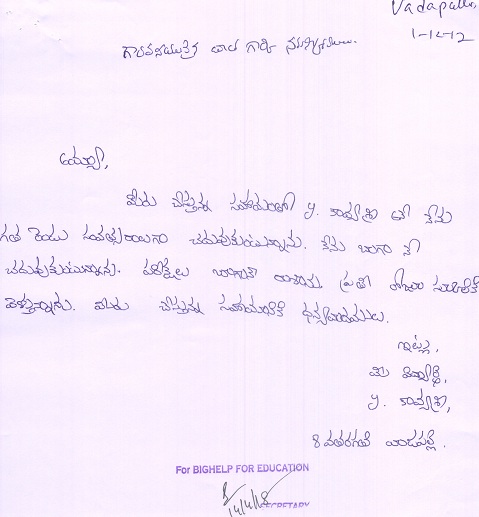 Vadapalli,
1-12-12
గౌరవనీయులైన దాత గార్కి నమస్కారములు.
అయ్యా,
మీరు చేస్తున్న సహాయంతో y. కావ్యశ్రీ అనే నేను
గత రెండు సంవత్సరాలుగా చదువుకుంటున్నాను. నేను బాగా నే
చదువుకుంటున్నాను. పరీక్షలు బాగా రాశాను ప్రతి రోజూ స్కూలుకి
వెళ్తున్నాను. మీరు చేస్తున్న సహాయంకి ధన్యవాదములు.
ఇట్లు,
మీ విద్యార్థి,
y. కావ్యశ్రీ,
8 వతరగతి వాడపల్లి.
For BIGHELP FOR EDUCATION
SECRETARY